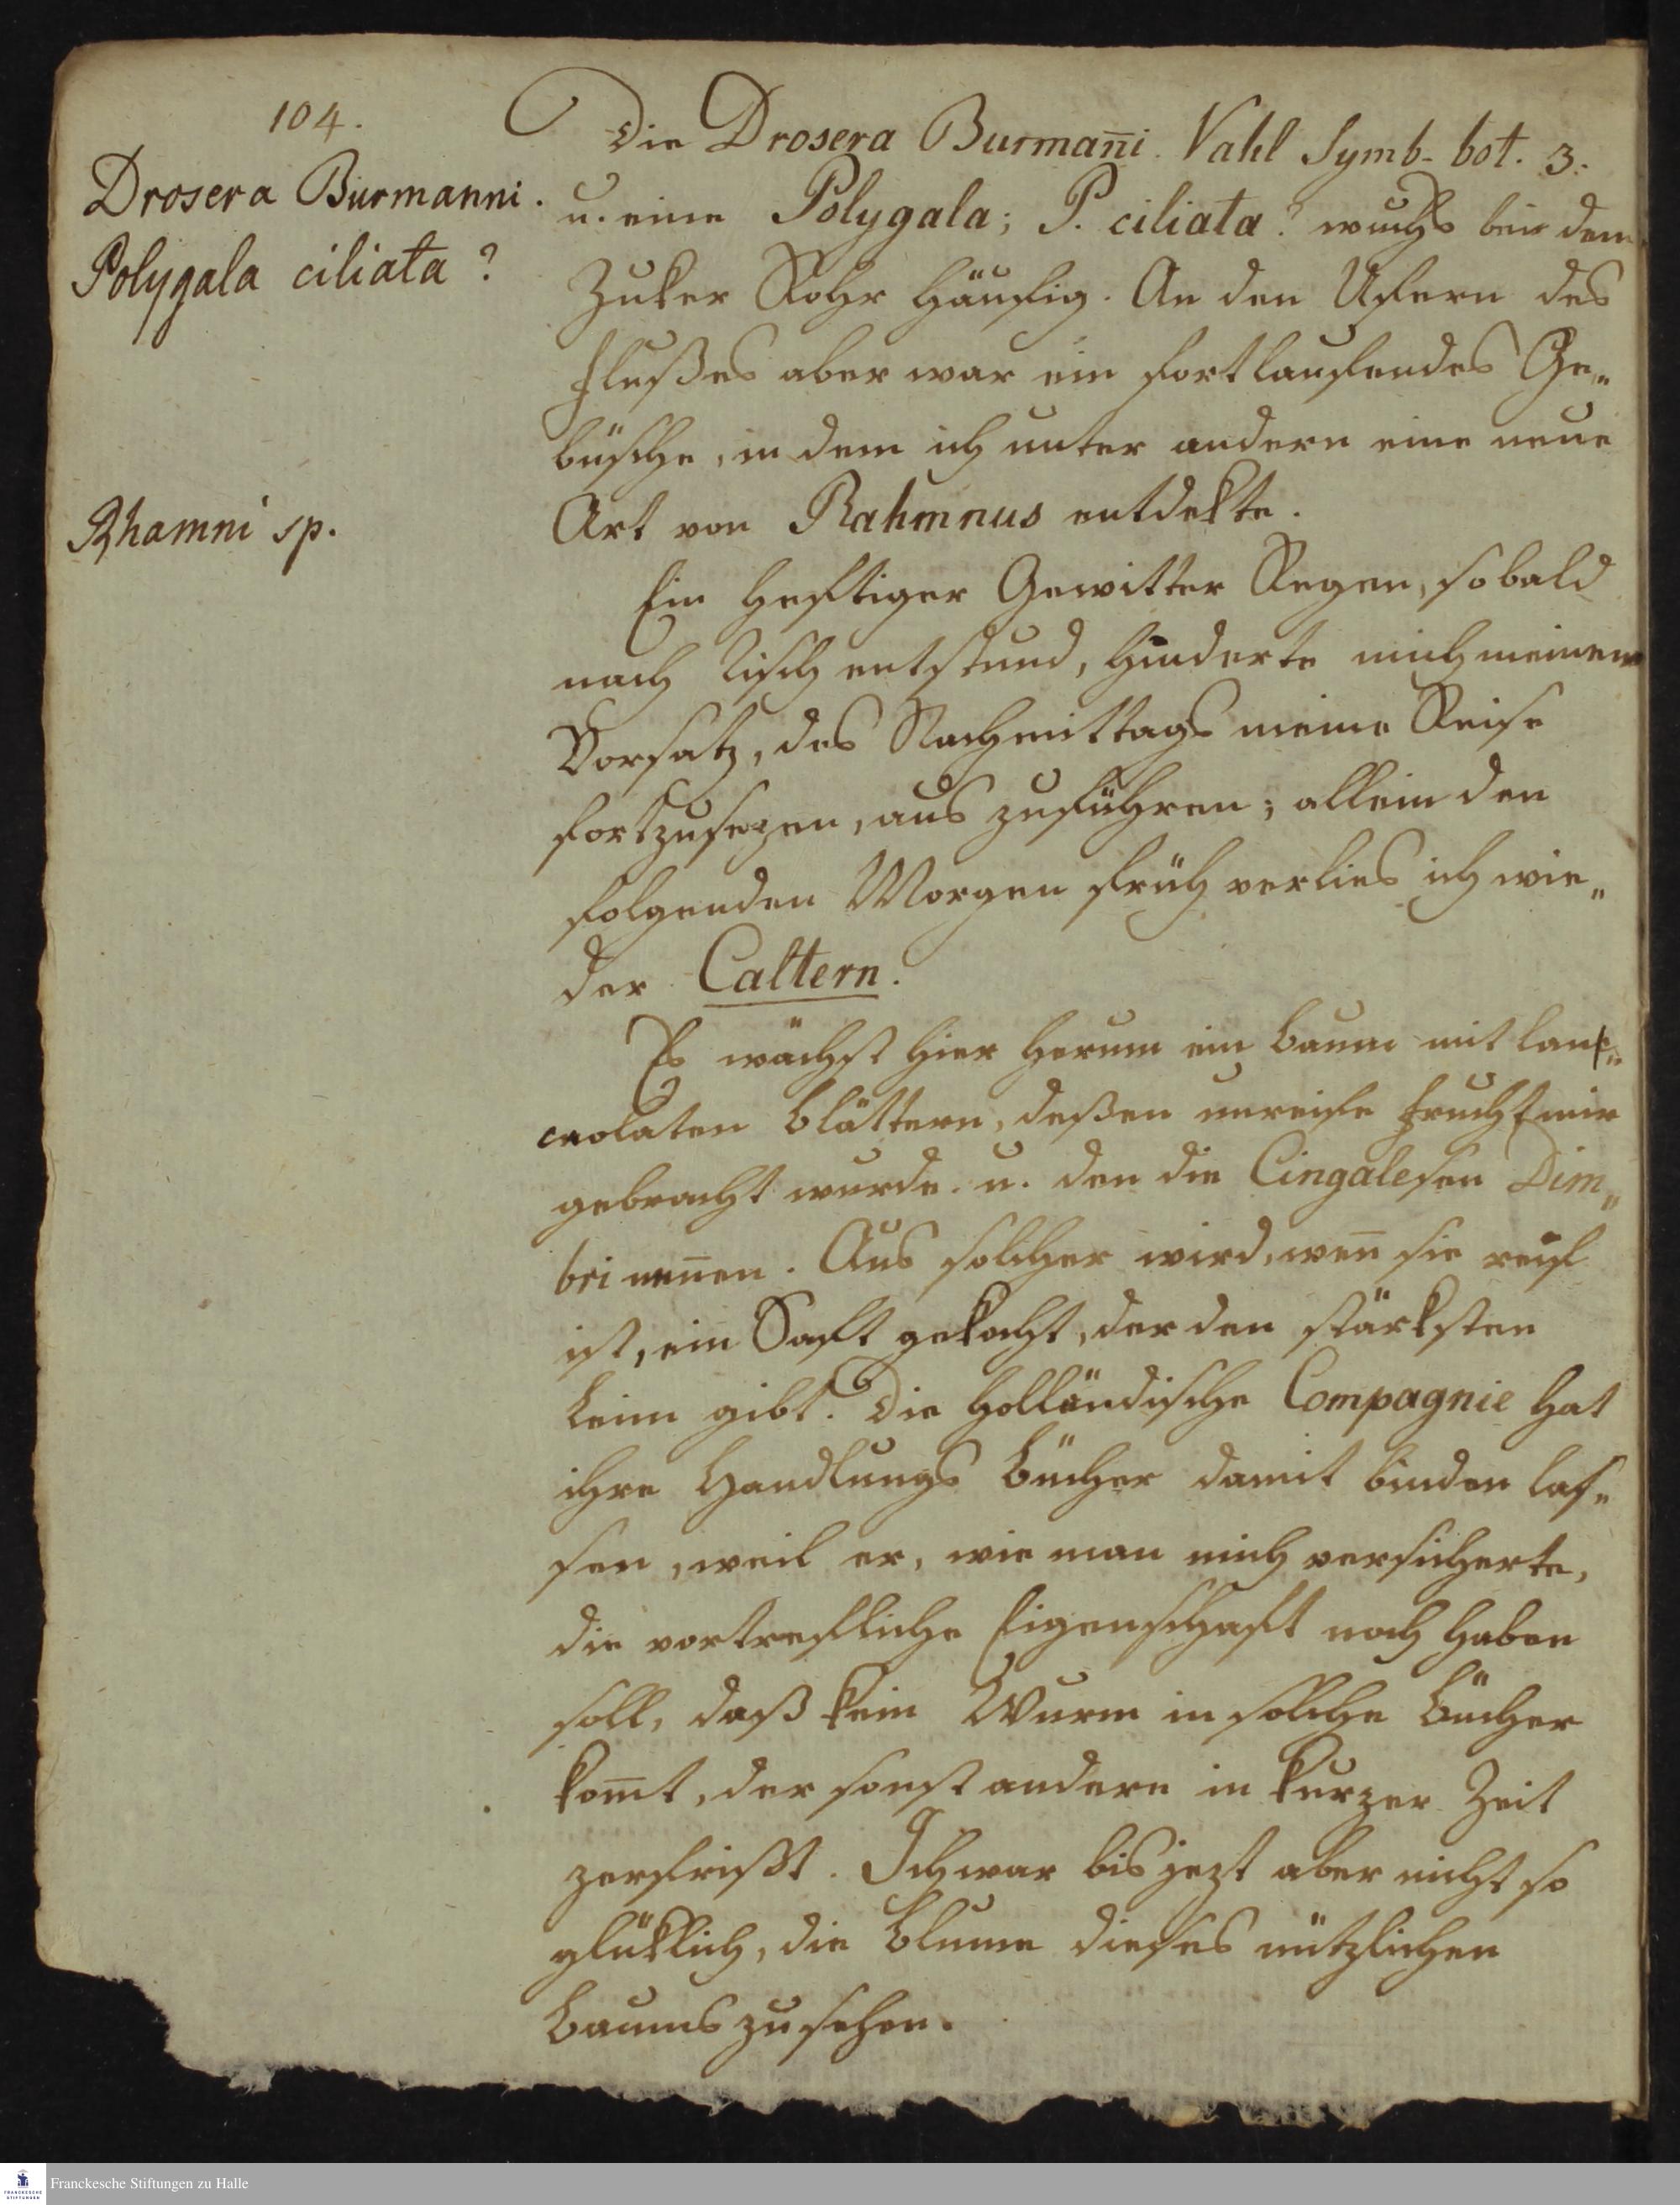 104.
Drosera Burmanni.
Polygala ciliata?
Rhamni sp.
Die Drosera Burman̄i. Vahl Symb. bot. 3.
u. eine Polygala; P. ciliata? wuchs bei dem
Zuker Rohr häufig. An den Ufern des
Flußes aber war ein fortlaufendes Ge„
büsche, in dem ich unter andern eine neue
Art von Rahmnus entdekte.
Ein heftiger Gewitter Regen, so bald
nach Tisch entstund, hinderte mich meinen
Vorsatz, des Nachmittags meine Reise
fortzusezen, aus zuführen; allein den
folgenden Morgen früh verlies ich wie„
der Caltern.
Es wächst hier herum ein Baum mit lan„
ceolaten Blättern, deßen unreife Frucht mir
gebracht wurde. u. den die Cingalesen Dim„
bri nen̄en. Aus solcher wird, wen̄ sie reif
ist, ein Saft gekocht, der den stärksten
Leim gibt. Die holländische Compagnie hat
ihre Handlungs Bücher damit binden las„
sen, weil er, wie man mich versicherte,
die vortrefliche Eigenschaft noch haben
soll, daß kein Wurm in solche Bücher
kom̄t, der sonst andere in kurzer Zeit
zerfrißt. Ich war bis jezt aber nicht so
glüklich, die Blume dieses nützlichen
Baums zu sehen.
Franckesche Stiftungen zu Halle
FRANCKESCHE
STIFTUNGEN